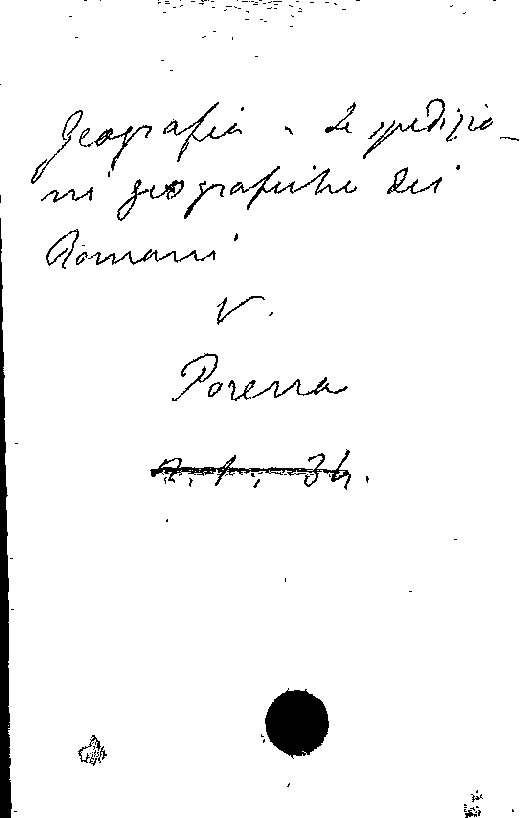 Geografia - Le spedizio-
ni geografiche dei
Romani
V.
Porena